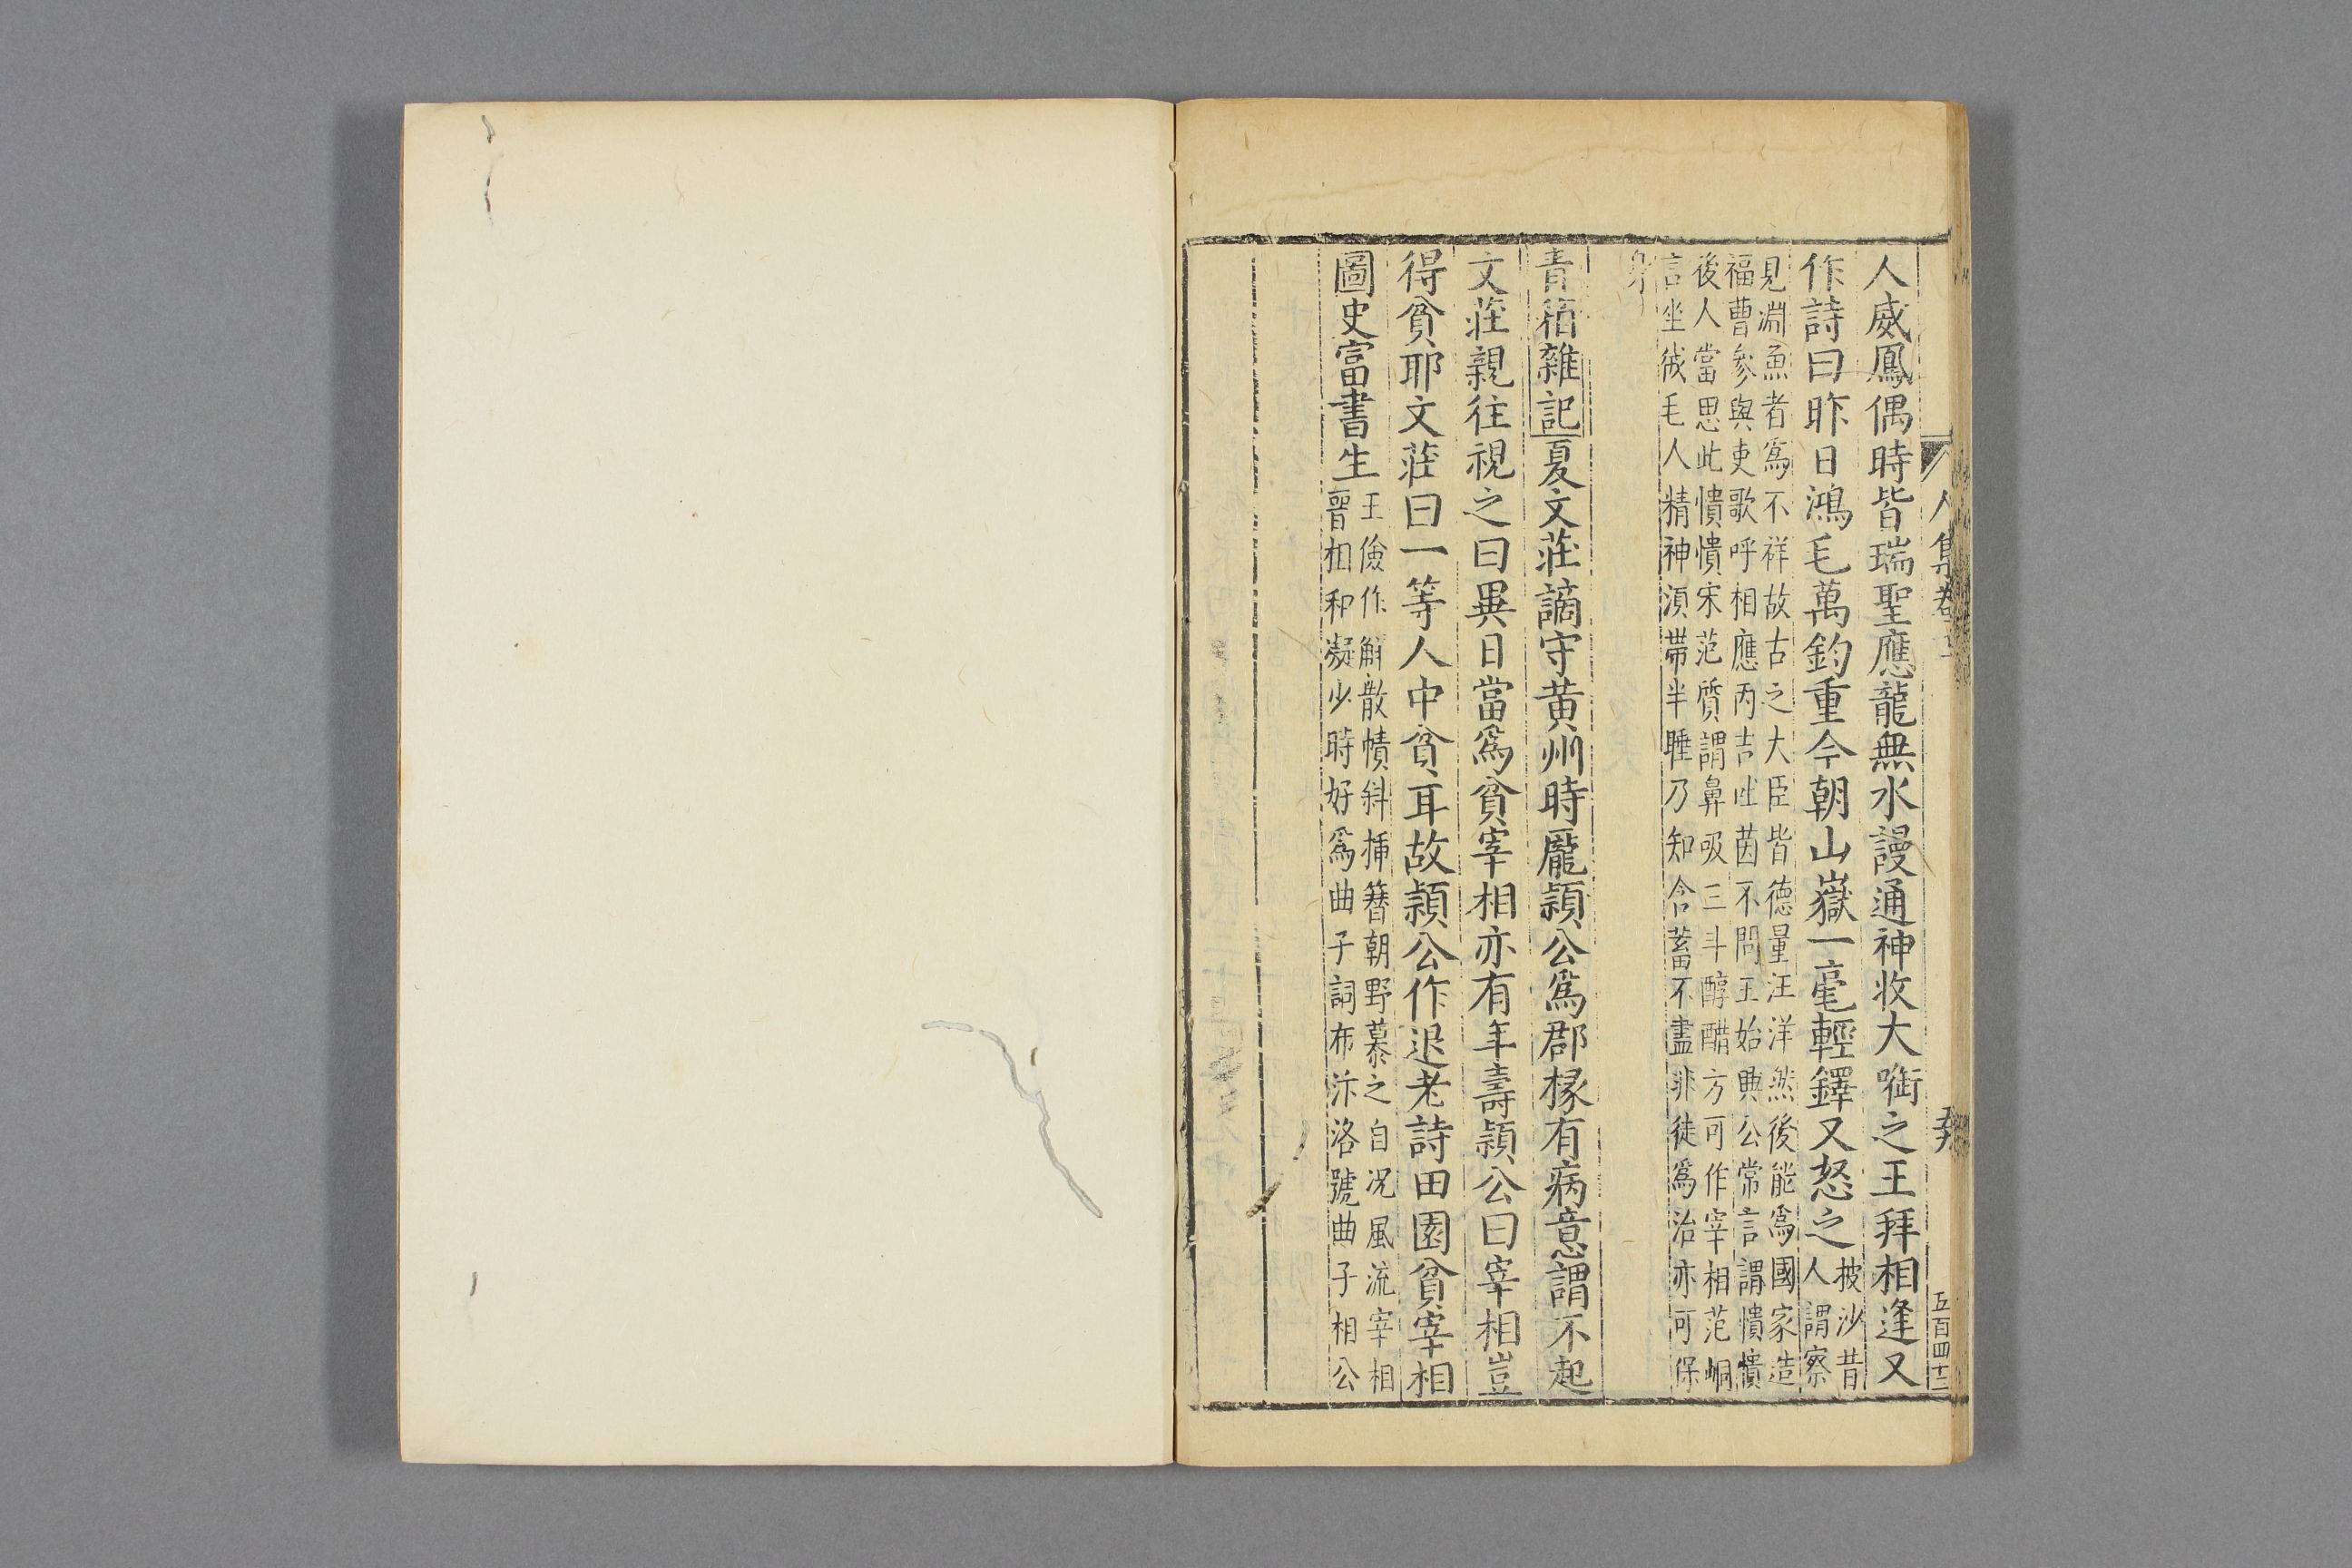 人集卷五
五百四十三
人威鳳偶時皆瑞聖應龍無水謾通神收大啣之王拜相逢又
作詩曰昨日鴻毛萬鈞重今朝山嶽一毫輕鐸又怒之
披沙昔
人謂察
見淵魚者爲不祥故古之大臣皆德量汪洋然後能爲國家造
福曹參與吏歌呼相應丙吉吐茵不問王始興公常言謂憒憒
後人當思此憒憒宋范質謂鼻吸三斗醇醋方可作宰相范峒
言坐絨毛人精神須帶半睡乃知含蓄不盡非徒爲治亦可保
身
青箱雜記夏文莊謫守黄州時龐頴公爲郡椽有病意謂不起
文莊親往視之曰異日當爲貧宰相亦有年壽頴公曰宰相豈
得貧耶文莊曰一等人中貧耳故頴公作退老詩田園貧宰相
圖史富書生
王儉作解散幘斜插簪朝野慕之自况風流宰相
晉相和凝少時好爲曲子詞布汴洛號曲子相公